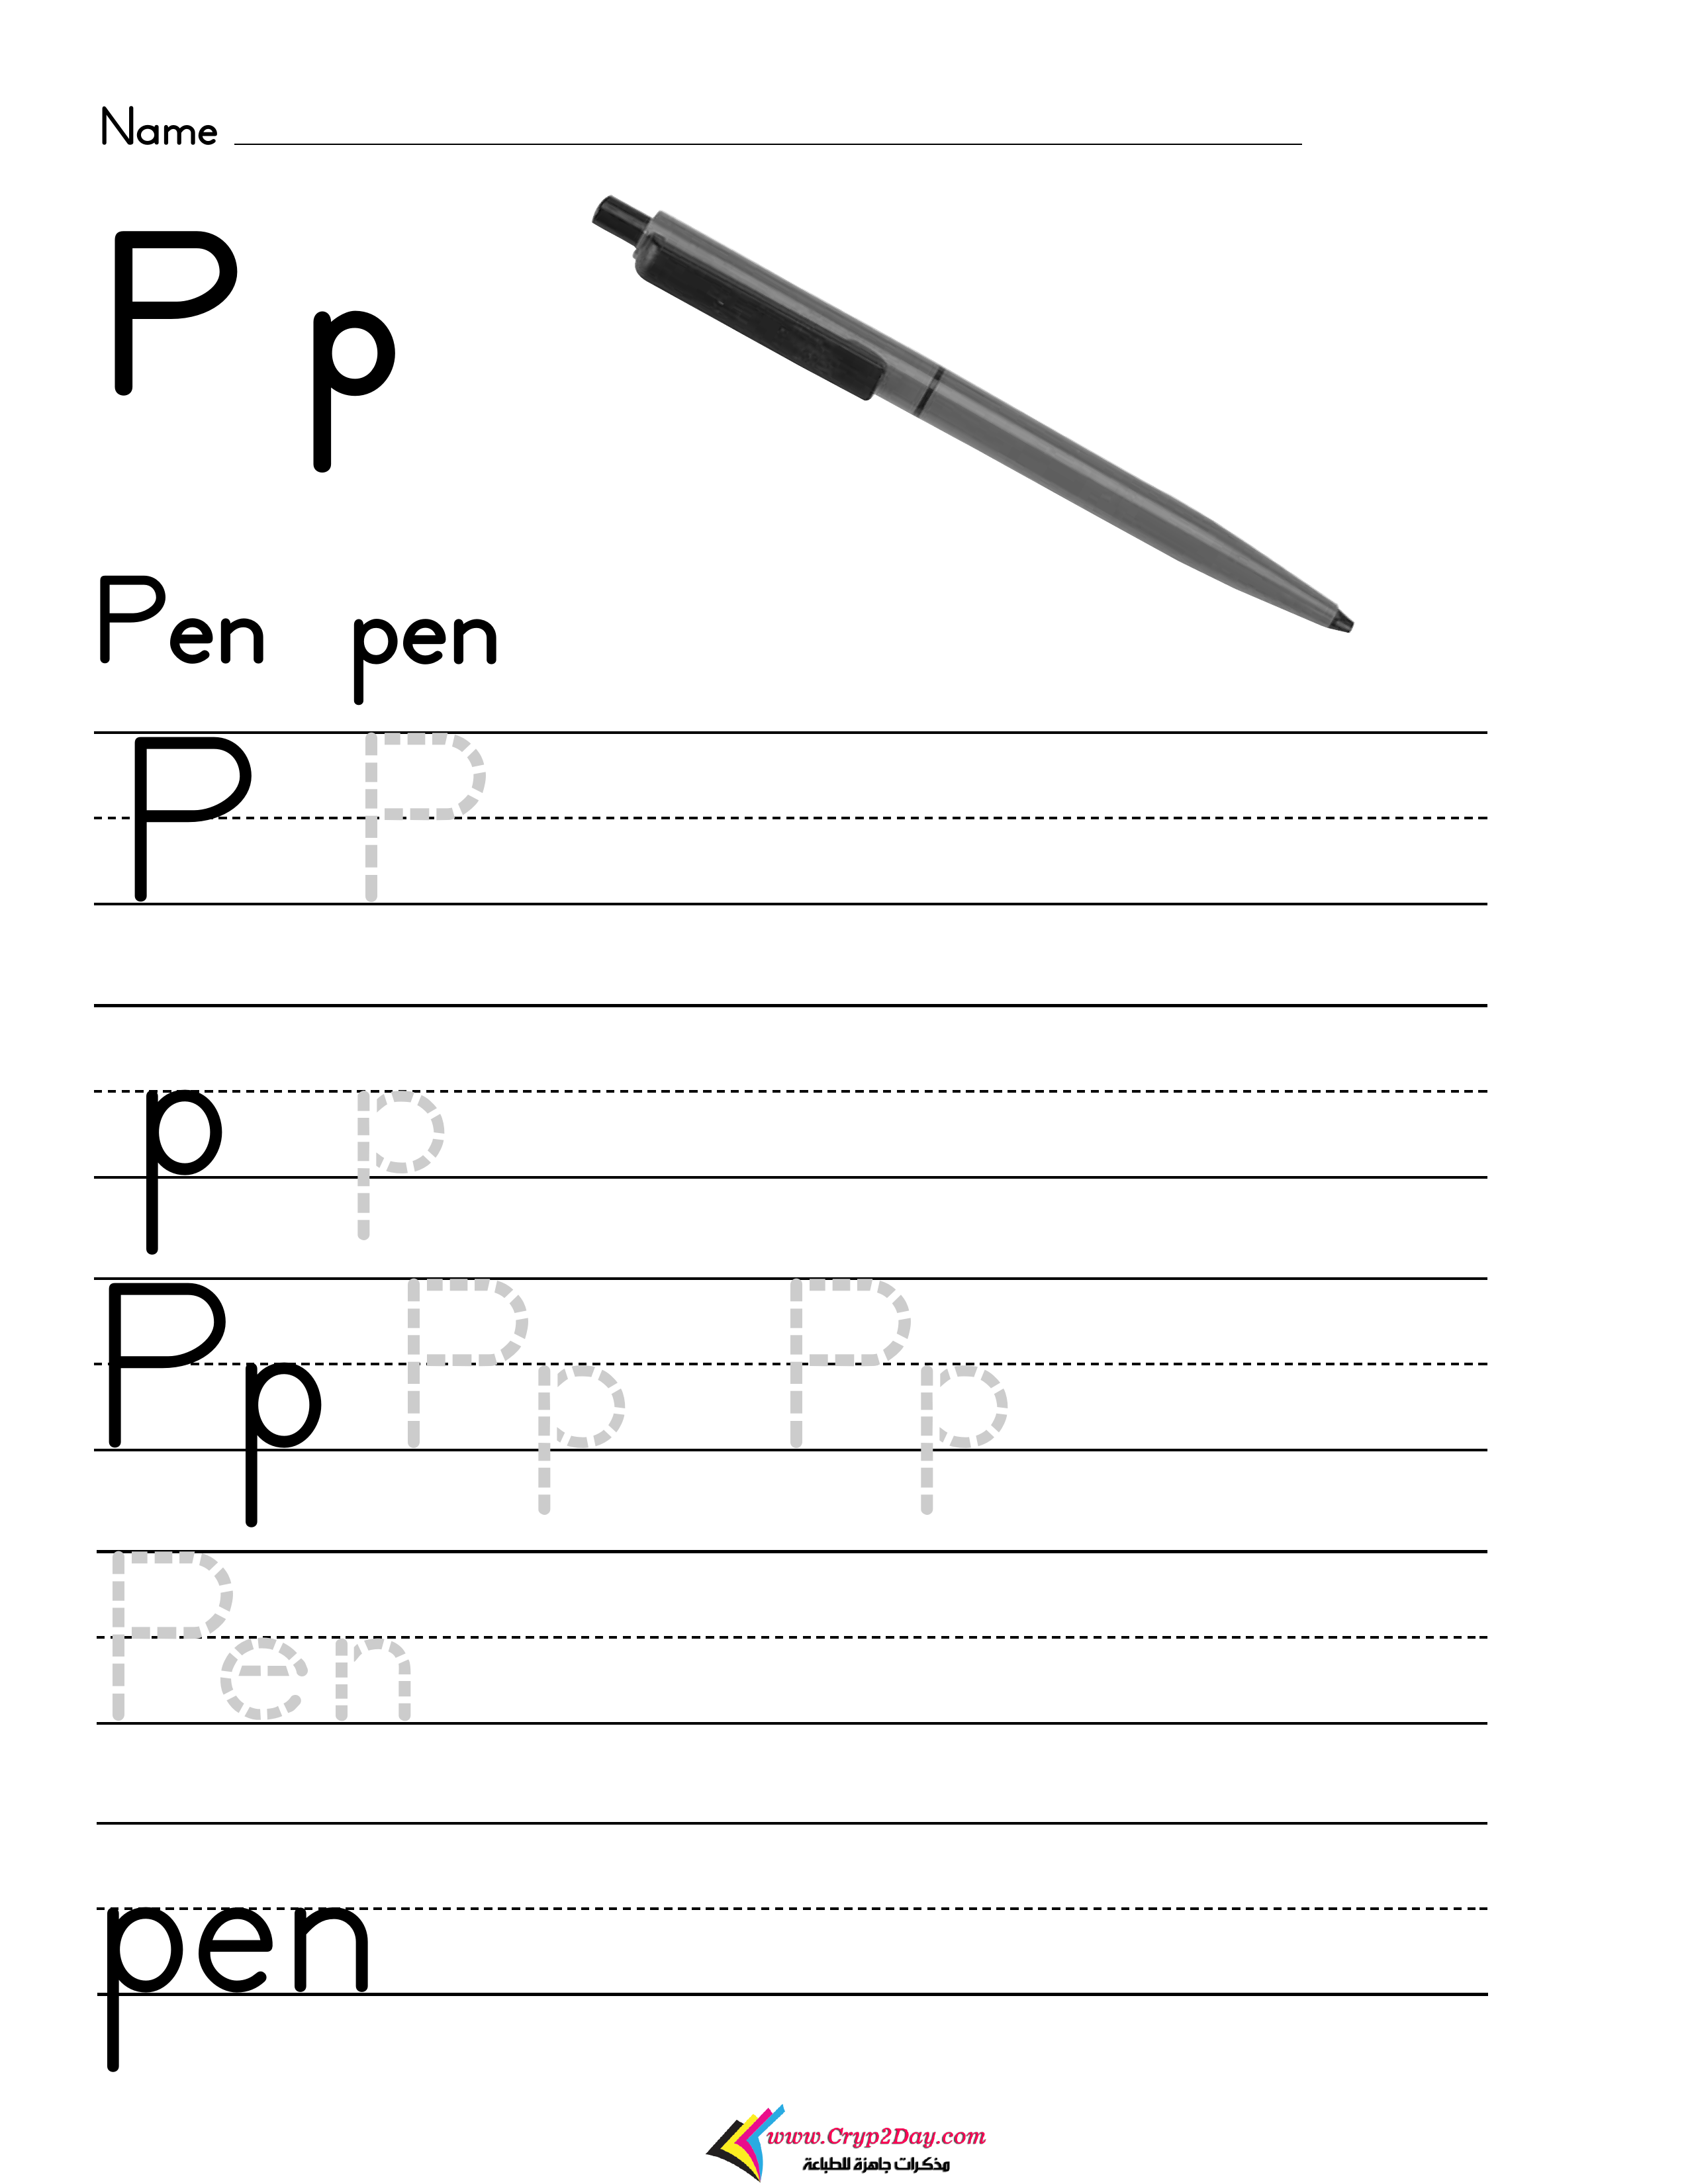 Name
P p
Pen pen
P P
p p
Pp Pp Pp
Pen
pen
www.Cryp2Day.com
مذكرات جاهزة للطباعة